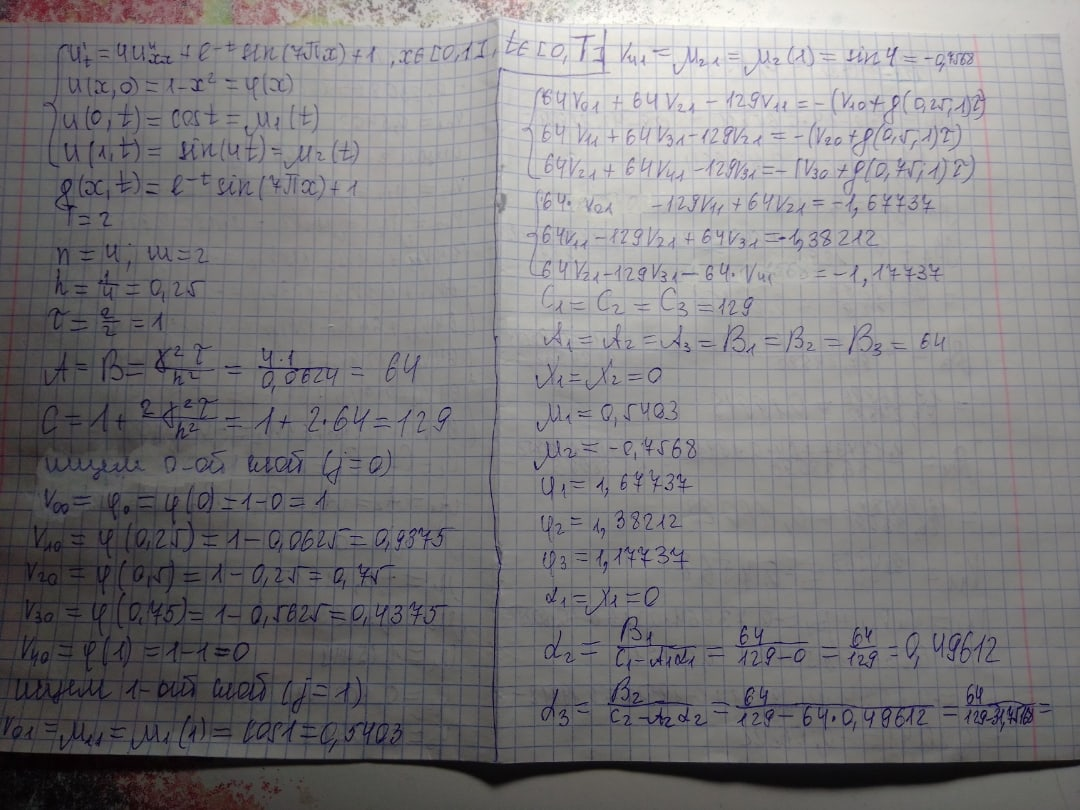 u't = 4u''xx + e^-t sin(7πx)+1, x∈[0,1], t∈[0,T]
u(x,0) = 1-x² = φ(x)
u(0,t) = cost = μ₁(t)
u(1,t) = sin(4t) = μ₂(t)
g(x,t) = e^-t sin(7πx)+1
T=2
n = 4; m=2
h = 1/4 = 0,25
τ = 2/2 = 1
A = B = γ²τ/h² = 4·1/0,0624 = 64
C = 1 + 2γ²τ/h² = 1 + 2·64 = 129
ищем 0-ой слой (j=0)
V₀₀ = φ₀ = φ(0) = 1-0 = 1
V₁₀ = φ(0,25) = 1-0,0625 = 0,9375
V₂₀ = φ(0,5) = 1-0,25 = 0,75
V₃₀ = φ(0,75) = 1-0,5625 = 0,4375
V₄₀ = φ(1) = 1-1 = 0
ищем 1-ой слой (j=1)
V₀₁ = μ₁₁ = μ₁(1) = cos1 = 0,5403
V₄₁ = μ₂₁ = μ₂(1) = sin4 = -0,7568
64V₀₁ + 64V₂₁ - 129V₁₁ = -(V₁₀+g(0,25;1)τ)
64V₁₁ + 64V₃₁ - 129V₂₁ = -(V₂₀+g(0,5;1)τ)
64V₂₁ + 64V₄₁ - 129V₃₁ = -(V₃₀+g(0,75;1)τ)
64·V₀₁ - 129V₁₁ + 64V₂₁ = -1,67737
64V₁₁ - 129V₂₁ + 64V₃₁ = -1,38212
64V₂₁ - 129V₃₁ - 64·V₄₁ = -1,17737
C₁ = C₂ = C₃ = 129
A₁ = A₂ = A₃ = B₁ = B₂ = B₃ = 64
X₁ = X₂ = 0
μ₁ = 0,5403
μ₂ = -0,7568
φ₁ = 1,67737
φ₂ = 1,38212
φ₃ = 1,17737
α₁ = X₁ = 0
α₂ = B₁/(C₁-A₁α₁) = 64/(129-0) = 64/129 = 0,49612
α₃ = B₂/(C₂-A₂α₂) = 64/(129-64·0,49612) = 64/(129-31,7518) =